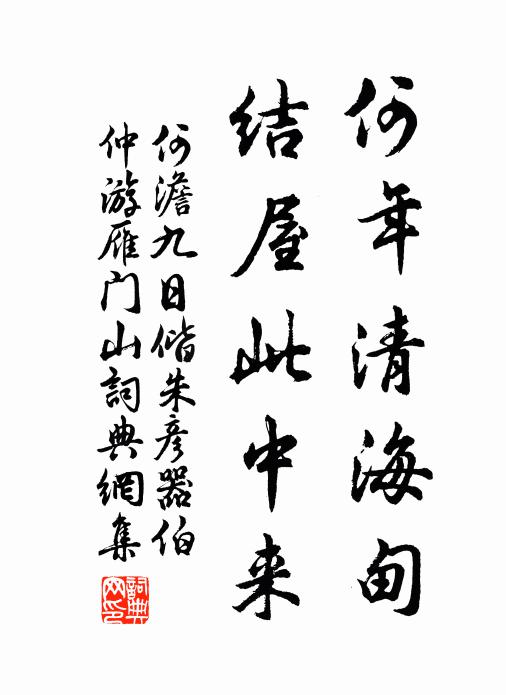 何年清海甸
结屋此中来
何澹九日偕朱彦器伯
仲游雁门山詞典網集
詞典網印